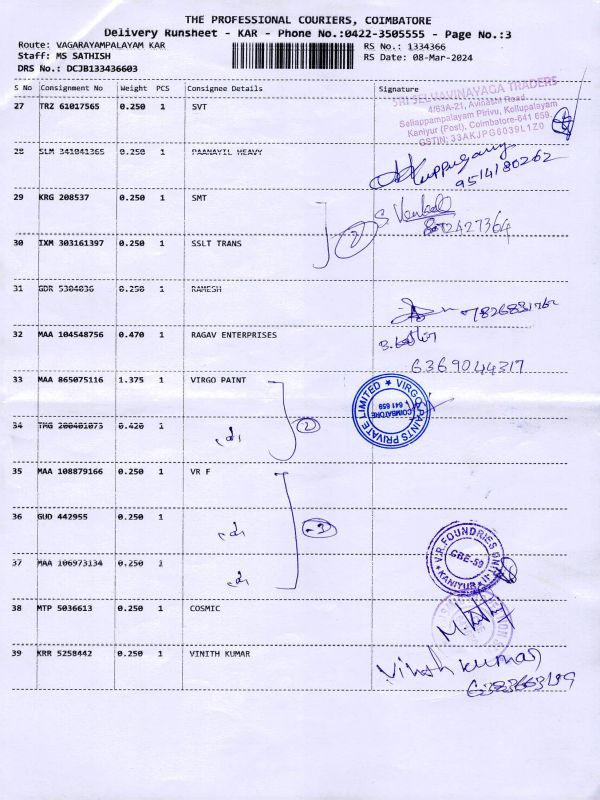 THE PROFESSIONAL COURIERS, COIMBATORE
Delivery Runsheet - KAR - Phone No.:0422-3505555 - Page No.:3
Route: VAGARAYAMPALAYAM KAR RS No.: 1334366
Staff: MS SATHISH RS Date: 08-Mar-2024
DRS No.: DCJB133436603
S No Consignment No Weight PCS Consignee Details Signature
27 TRZ 61017565 0.250 1 SVT
SRI SELVAVINAYAGA TRADERS
4/63A-21, Avinashi Road
Sellappampalayam Pirivu, Kollupalayam
Kaniyur (Post), Coimbatore-641 659.
GSTIN: 33AKJPG6039L1Z0
28 SLM 341041365 0.250 1 PAANAYIL HEAVY
9514180262
29 KRG 208537 0.250 1 SMT
2
30 IXM 303161397 0.250 1 SSLT TRANS
31 GDR 5304036 0.250 1 RAMESH
32 MAA 104548756 0.470 1 RAGAV ENTERPRISES
6369044317
33 MAA 865075116 1.375 1 VIRGO PAINT
VIRGO PAINTS PRIVATE LIMITED
COIMBATORE
641 659
34 TMG 200401073 0.420 1
2
35 MAA 108879166 0.250 1 VR F
36 GUD 442955 0.250 1
3
V.R. FOUNDRIES UNIT
CBE-59
KANIYUR
37 MAA 106973134 0.250 1
38 MTP 5036613 0.250 1 COSMIC
39 KRR 5258442 0.250 1 VINITH KUMAR
Vinoth kumar